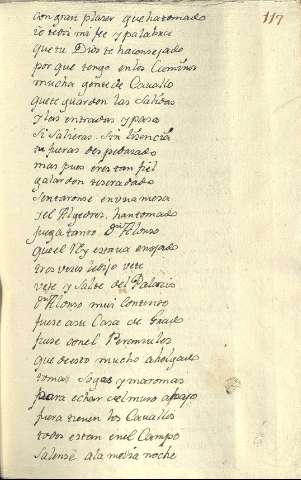 117
con gran plazer que ha tomado
yo te doi mi fee y palabra
que tu Dios te ha consejado
por que tengo en los Caminos
mucha gente de Cavallo
que te guarden las Salidas
y las entradas y paso
si Salieras Sin lisencia
tu fueras despedasado
mas pues eres tan fiel
galardon te sera dado
Sentaronse en una mesa
y el Algedres han tomado
juega tanto Dn Alonso
que el Rey estava enojado
tres veses le dijo vete
vete y Salte del Palacio
Dn Alonso mui Contento
fuese a su Casa de Grado
fuese con el Peransules
que de esto mucho a holgado
toman Sogas y maromas
para echar del muro abajo
fuera tienen los Cavallos
todos estan en el Campo
Salense a la media noche